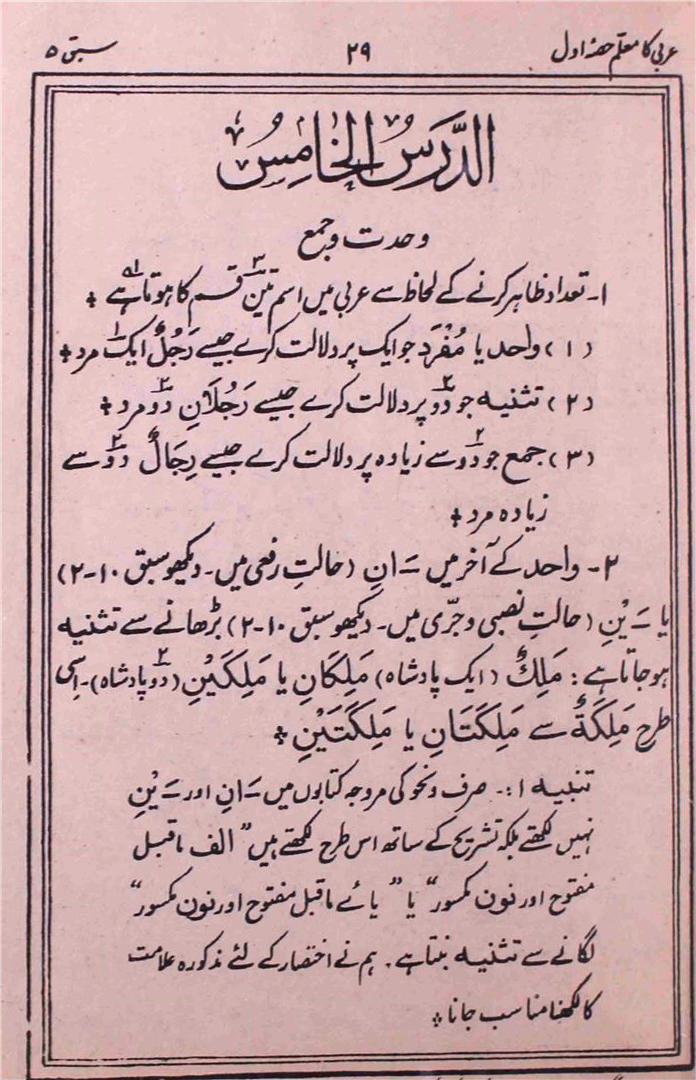 عربی کا معلّم حصّہ اول ۲۹ سبق ۵
الدَّرْسُ الْخَامِسُ
وحدت و جمع
۱۔ تعداد ظاہر کرنے کے لحاظ سے عربی میں اسم تین۳ قسم کا ہوتا ہے ÷
(۱) واحد یا مُفْرَد جو ایک پر دلالت کرے جیسے رَجُلٌ ایک۱ مرد ÷
(۲) تثنیہ جو دو۲ پر دلالت کرے جیسے رَجُلَانِ دو۲ مرد ÷
(۳) جمع جو دو۲ سے زیادہ پر دلالت کرے جیسے رِجَالٌ دو۲ سے
زیادہ مرد ÷
۲۔ واحد کے آخر میں ــَ انِ (حالتِ رفعی میں۔ دیکھو سبق ۱۰-۲)
یا ــَ یْنِ (حالتِ نصبی و جرّی میں۔ دیکھو سبق ۱۰-۲) بڑھانے سے تثنیہ
ہو جاتا ہے: مَلِكٌ (ایک پادشاہ) مَلِكَانِ یا مَلِكَیْنِ (دو۲ پادشاہ)۔ اِسی
طرح مَلِكَةٌ سے مَلِكَتَانِ یا مَلِكَتَیْنِ ÷
تنبیہ ۱:۔ صرف و نحو کی مروجہ کتابوں میں ــَ انِ اور ــَ یْنِ
نہیں لکھتے بلکہ تشریح کے ساتھ اس طرح لکھتے ہیں ”الف ماقبل
مفتوح اور نون مکسور“ یا ”یائے ماقبل مفتوح اور نون مکسور“
لگانے سے تثنیہ بنتا ہے۔ ہم نے اختصار کے لئے مذکورہ علامت
کا لکھنا مناسب جانا ÷